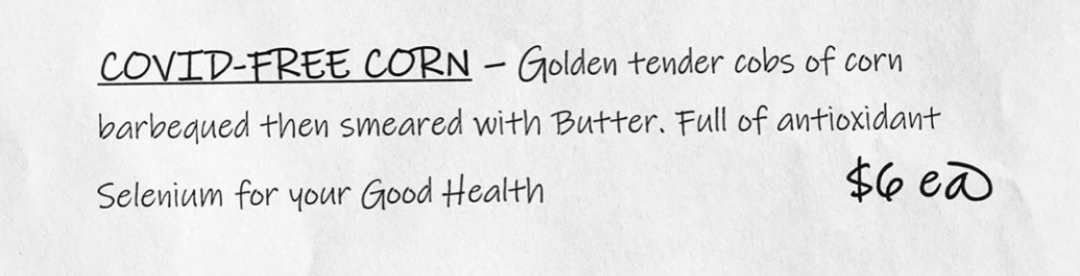 COVID-FREE CORN – Golden tender cobs of corn
barbequed then smeared with Butter. Full of antioxidant
Selenium for your Good Health
$6 ea